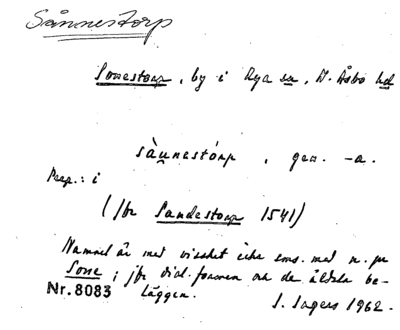 Sånnestorp
Sonestorp, by i Rya sn, N. Åsbo hd
sànnestórp, gen. -a.
Prep.: i
(jfr Sandestorp 1541)
Namnet är med visshet icke sms. med n. pr
Sone; jfr dial. formen och de äldsta be-
läggen.
Nr. 8083
I. Ingers 1962.